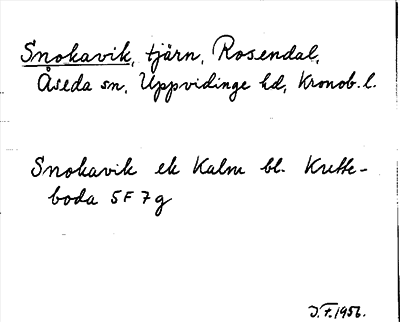 Snokavik, tjärn, Rosendal,
Åseda sn, Uppvidinge hd, Kronob. l.
Snokavik ek Kalm bl. Krukke-
boda 5F 7g
J.F. 1956.